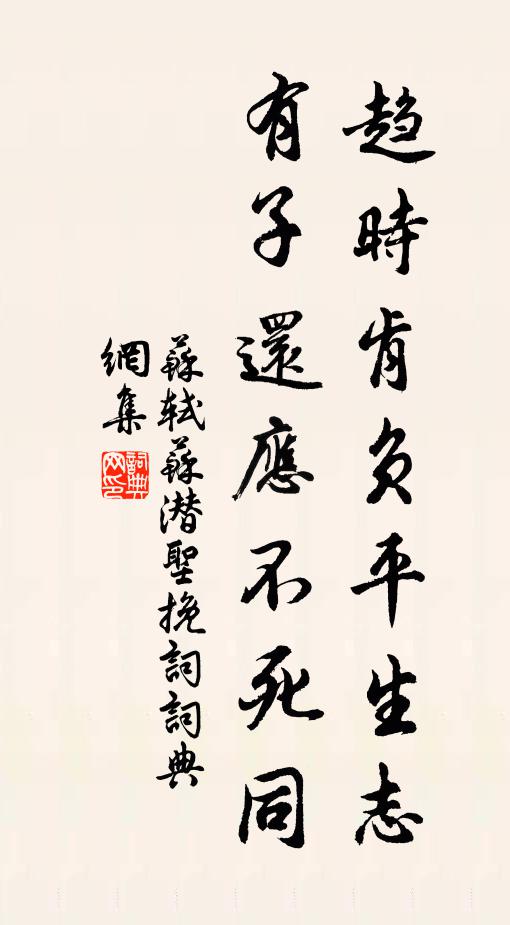 趨時肯負平生志
有子還應不死同
蘇軾蘇潜聖挽詞詞典
網集
詞典
网印